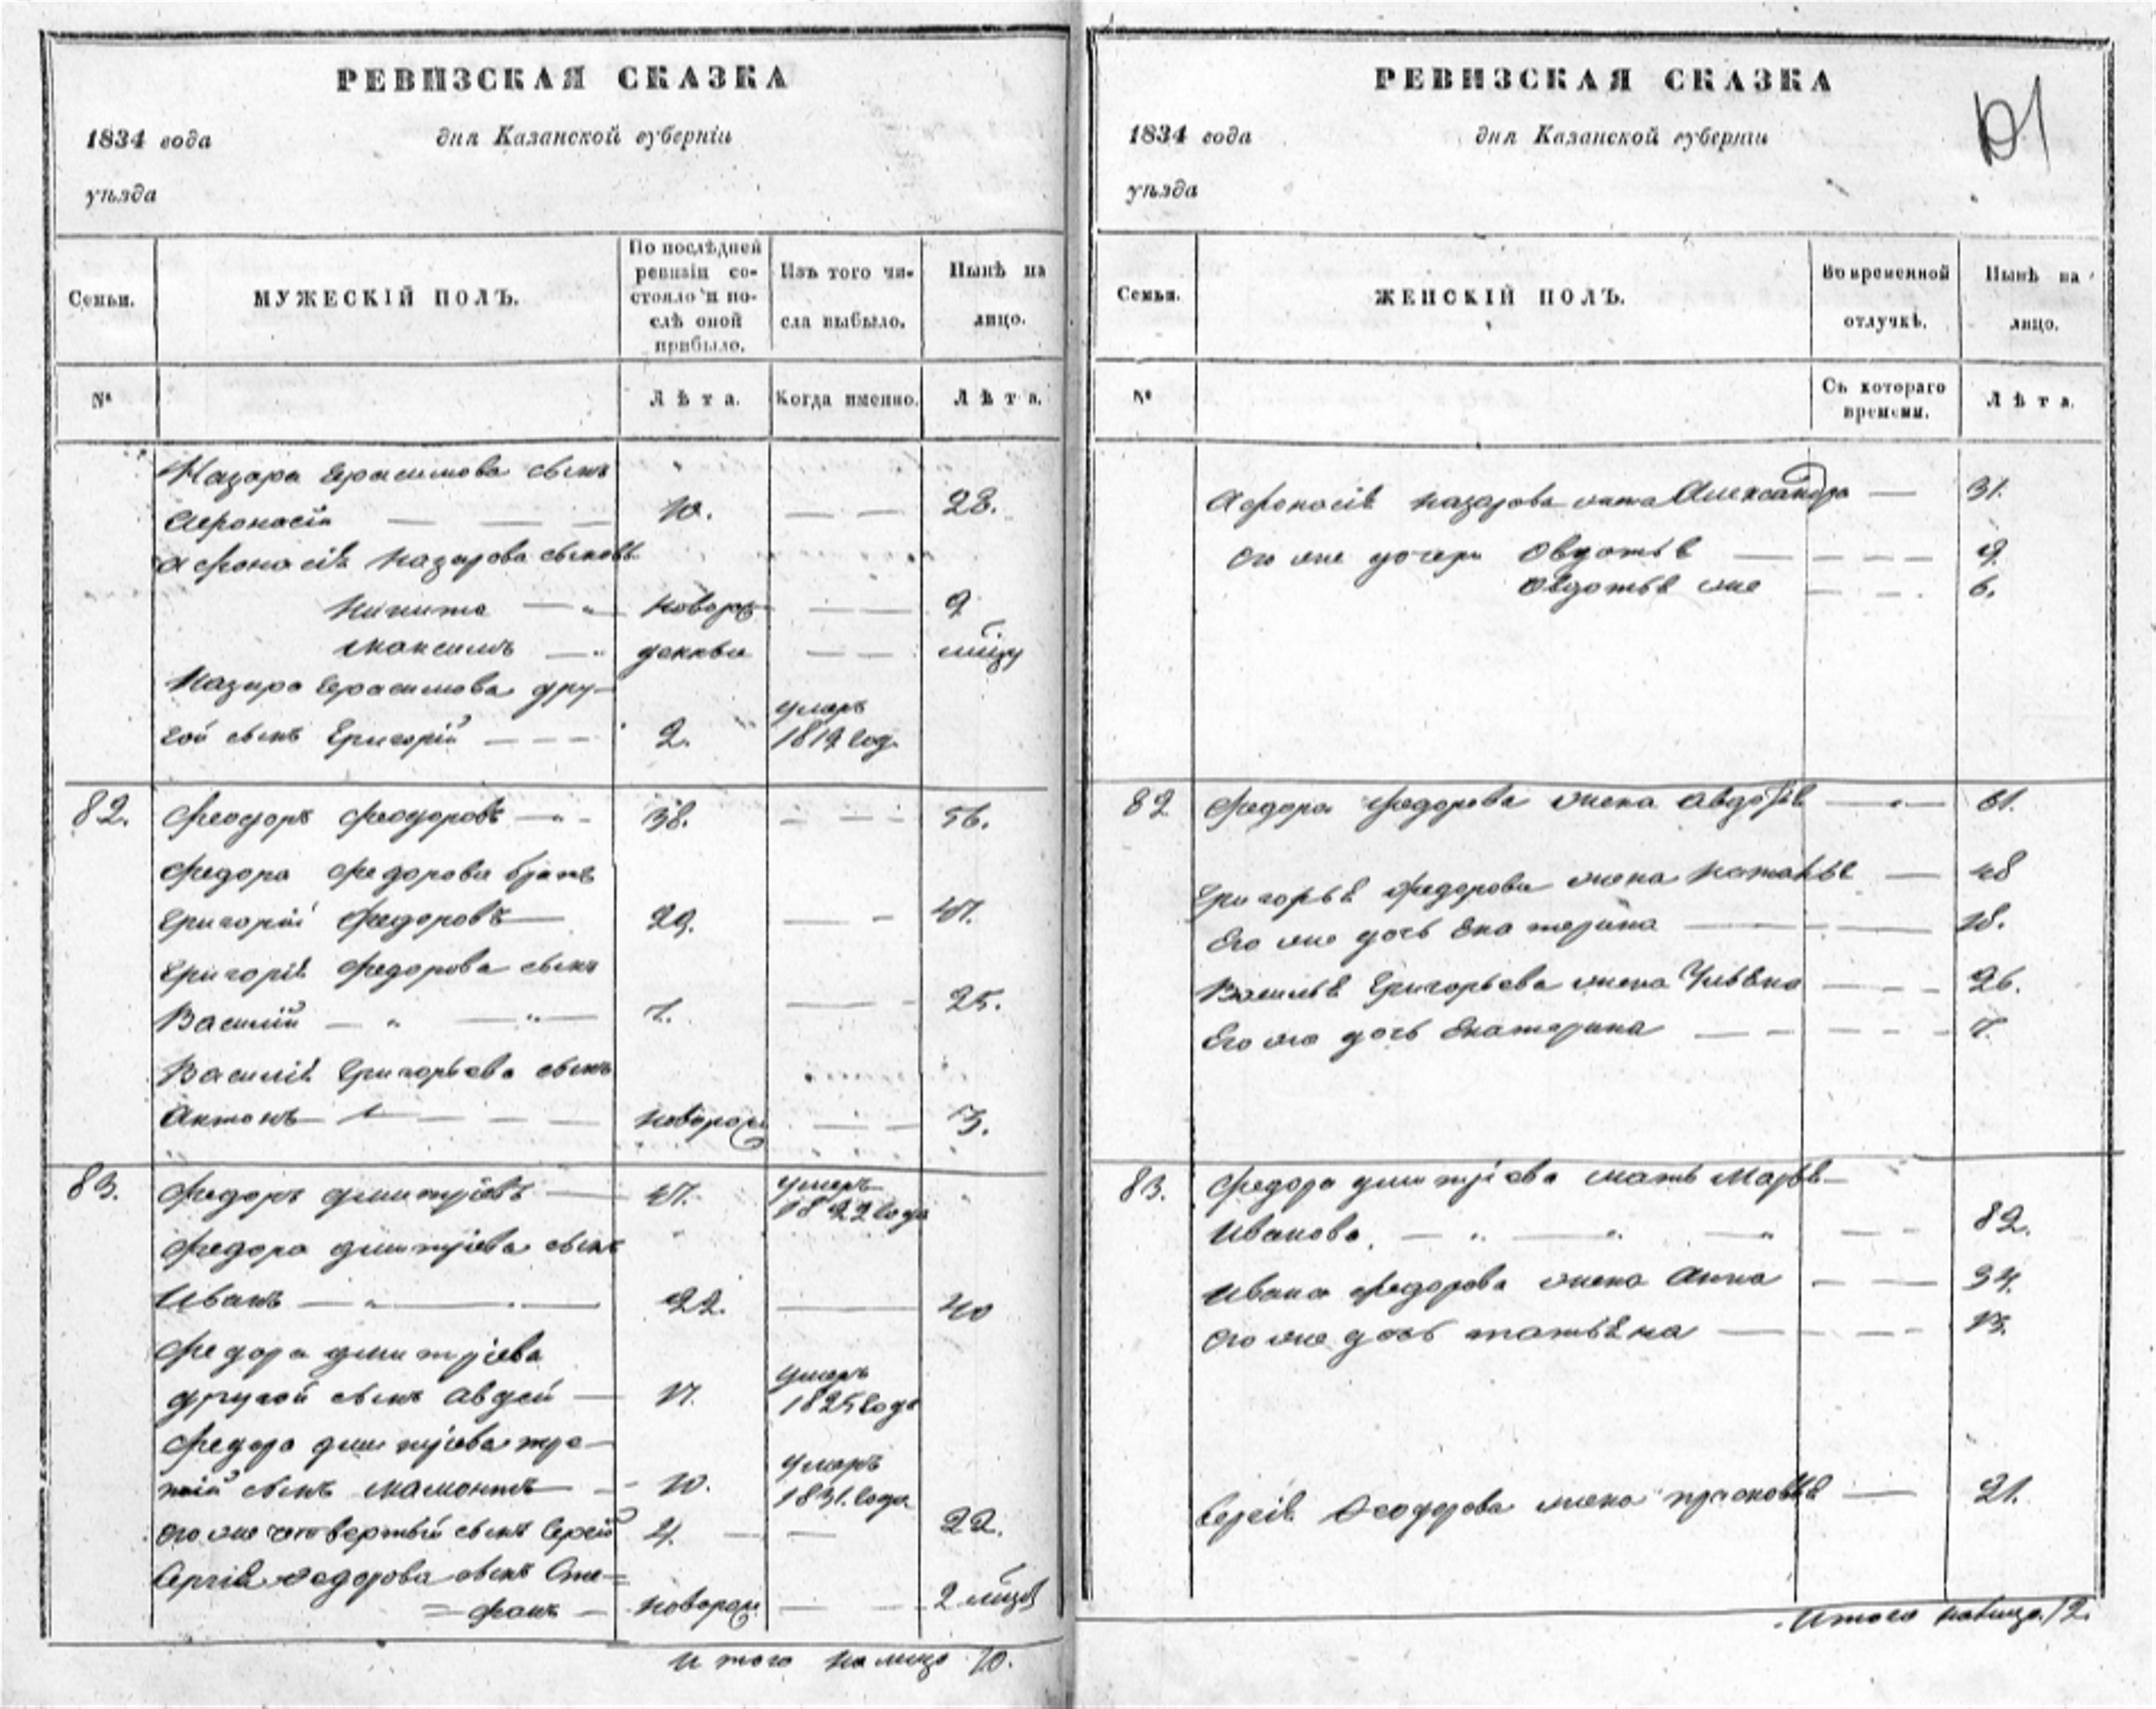 РЕВИЗСКАЯ СКАЗКА
1834 года дня Казанской губерніи
уѣзда
Семьи.
МУЖЕСКІЙ ПОЛЪ.
По послѣдней
ревизіи со-
стояло и по-
слѣ оной
прибыло.
Изъ того чи-
сла выбыло.
Нынѣ на
лицо.
№
Лѣта.
Когда именно.
Лѣта.
Назара Герасимова сынъ
Афонасій 10. 28.
Афонасія Назарова сыновья
Никита новорож 9
Максимъ
Назара Герасимова дру-
гой сынъ Григорій 2. умеръ 1819 год.
82. Феодоръ Феодоровъ 38. 56.
Федора Федорова братъ
Григорій Федоровъ 29. 47.
Григорія Федорова сынъ
Василій 7. 25.
Василія Григорьева сынъ
Антонъ новорож 3.
83. Федоръ Дмитріевъ 47. умеръ 1822 года
Федора Дмитріева сынъ
Иванъ 22. 40
Федора Дмитріева
другой сынъ Авдей 17. умеръ 1825 года
Федора Дмитріева тре-
тій сынъ Мамонтъ 10. умеръ 1831. года
его же четвертый сынъ Сергей 4. 22.
Сергія Федорова сынъ Сте-
=фанъ новорож 2 мѣсц
итого на лицо 10.
РЕВИЗСКАЯ СКАЗКА
1834 года дня Казанской губерніи
уѣзда
Семьи.
ЖЕНСКІЙ ПОЛЪ.
Во временной
отлучкѣ.
Нынѣ на
лицо.
№
Съ котораго
времени.
Лѣта.
Афонасія Назарова жена Александра 31.
его же дочери Овдотья 9.
Овдотья же 6.
82 Федора Федорова жена Авдотья 61.
Григорья Федорова жена Наталья 48
Его же дочь Екатерина 18.
Василья Григорьева жена Ульяна 26.
Его же дочь Екатерина 7.
83. Федора Дмитріева мать Марья
Иванова. 82.
Ивана Федорова жена Анна 34.
его же дочь Татьяна 13.
Сергія Феодорова жена Прасковья 21.
Итого налицо. 12.